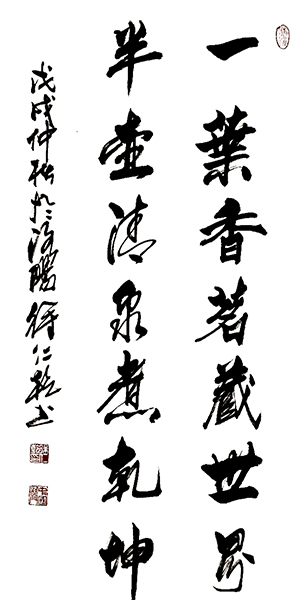 一葉香茗藏世界
半壺清泉煮乾坤
戊戌仲秋於洛陽徐仁乾書